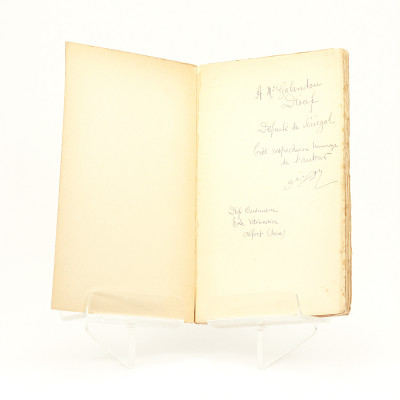 A Mr Galandou
Diouf
Député du Sénégal
très respectueux hommage
de l'auteur
Ecole Vétérinaire
Alfort (Seine)